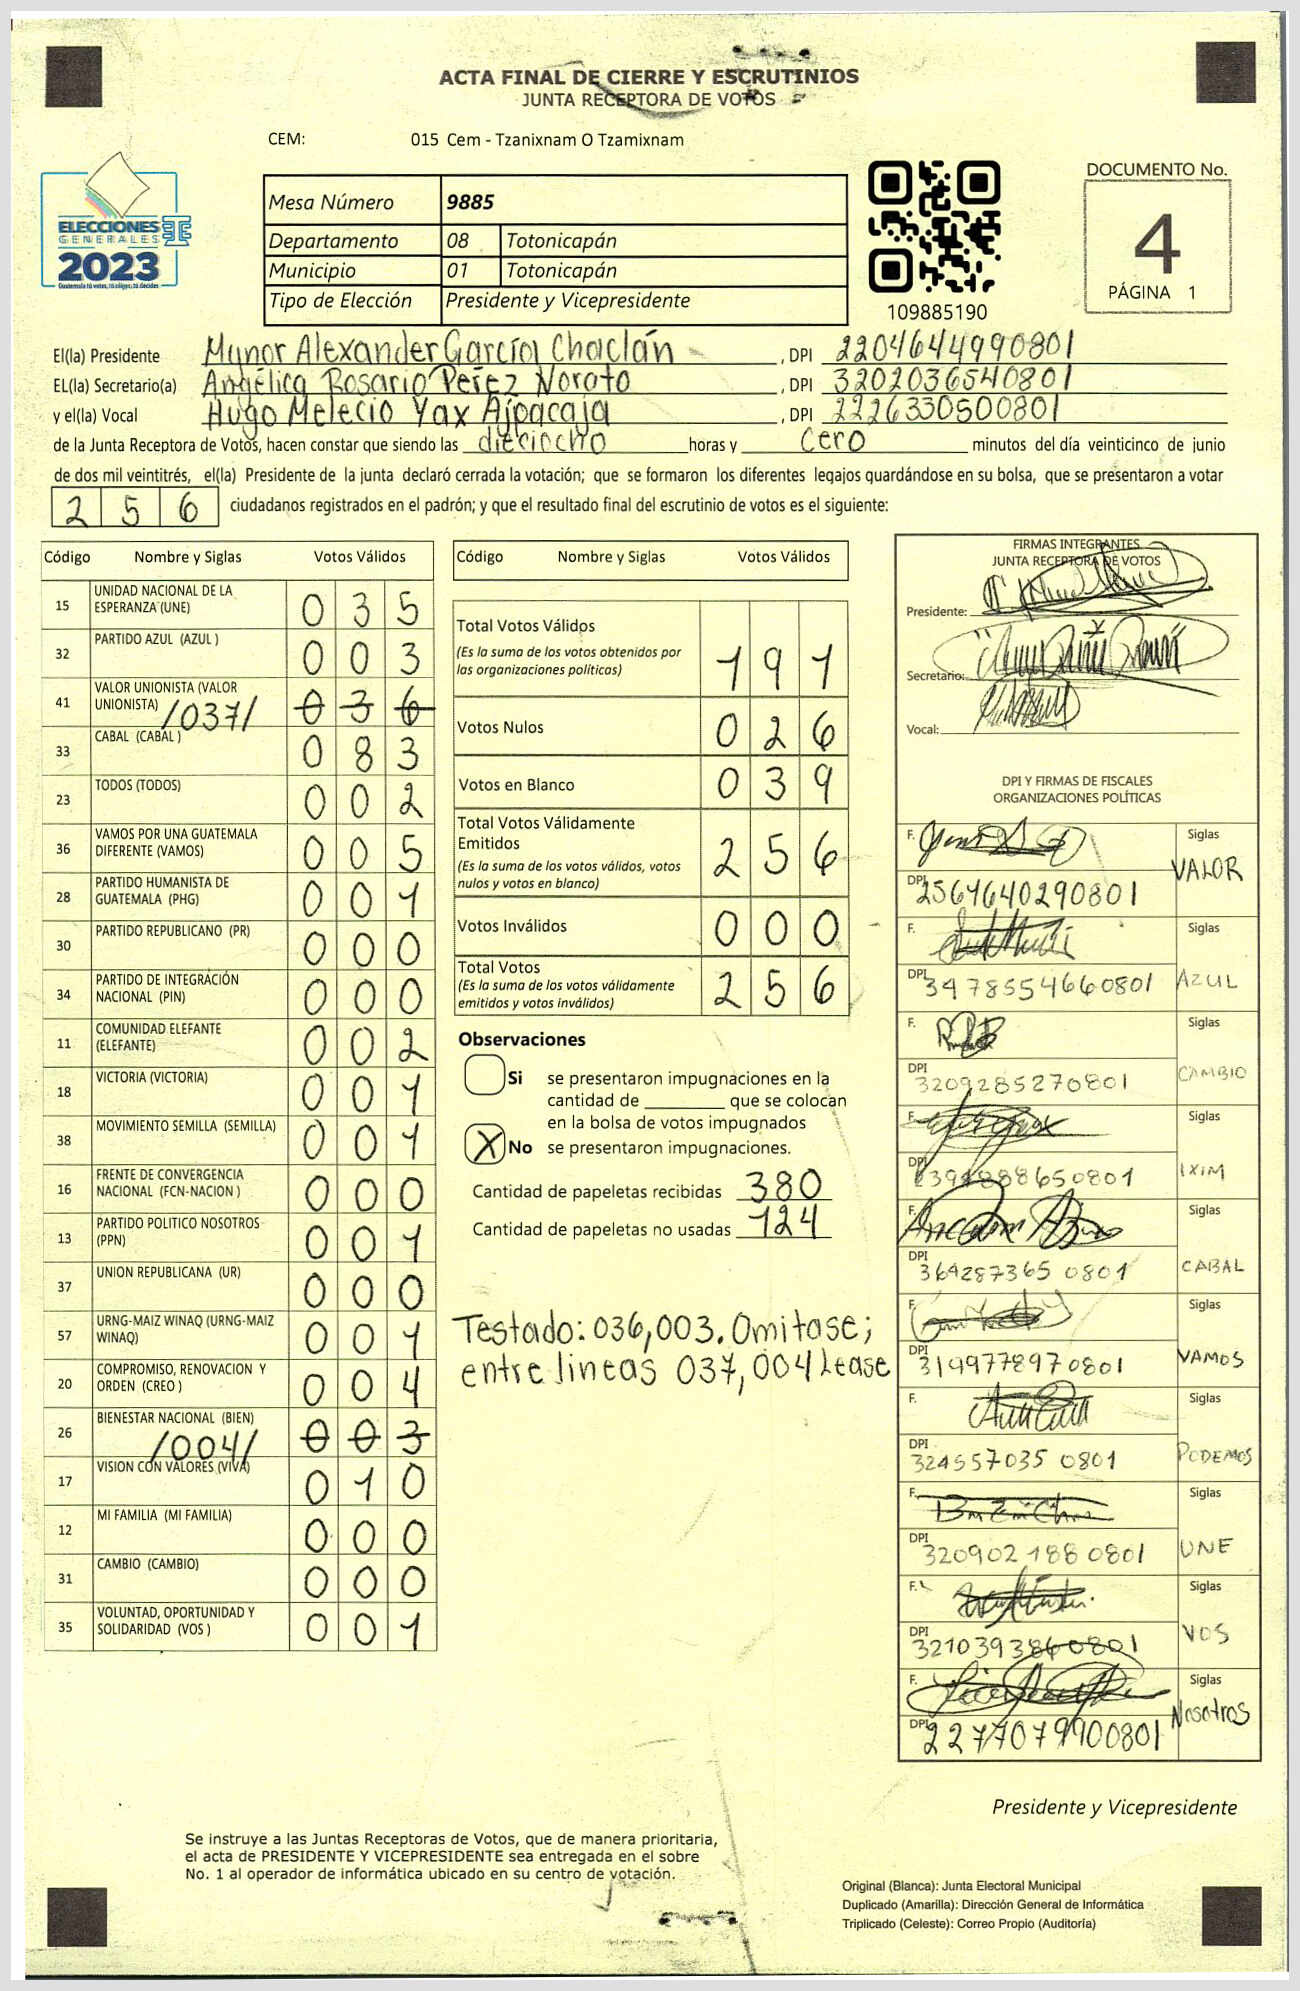 ACTA FINAL DE CIERRE Y ESCRUTINIOS
JUNTA RECEPTORA DE VOTOS
CEM: 015 Cem - Tzanixnam O Tzamixnam
ELECCIONES
GENERALES
2023
Guatemala tú votas, tú eliges, tú decides
Mesa Número 9885
Departamento 08 Totonicapán
Municipio 01 Totonicapán
Tipo de Elección Presidente y Vicepresidente
109885190
DOCUMENTO No.
4
PÁGINA 1
El(la) Presidente Mynor Alexander García Chaclán , DPI 2204644990801
EL(la) Secretario(a) Angélica Rosario Perez Norato , DPI 3202036540801
y el(la) Vocal Hugo Melecio Yax Ajpacaja , DPI 2226330500801
de la Junta Receptora de Votos, hacen constar que siendo las dieciocho horas y cero minutos del día veinticinco de junio
de dos mil veintitrés, el(la) Presidente de la junta declaró cerrada la votación; que se formaron los diferentes legajos quardándose en su bolsa, que se presentaron a votar
256 ciudadanos registrados en el padrón; y que el resultado final del escrutinio de votos es el siguiente:
Código Nombre y Siglas Votos Válidos
15 UNIDAD NACIONAL DE LA
ESPERANZA (UNE) 035
32 PARTIDO AZUL (AZUL ) 003
41 VALOR UNIONISTA (VALOR
UNIONISTA) /037/ 036
33 CABAL (CABAL ) 083
23 TODOS (TODOS) 002
36 VAMOS POR UNA GUATEMALA
DIFERENTE (VAMOS) 005
28 PARTIDO HUMANISTA DE
GUATEMALA (PHG) 001
30 PARTIDO REPUBLICANO (PR) 000
34 PARTIDO DE INTEGRACIÓN
NACIONAL (PIN) 000
11 COMUNIDAD ELEFANTE
(ELEFANTE) 002
18 VICTORIA (VICTORIA) 001
38 MOVIMIENTO SEMILLA (SEMILLA) 001
16 FRENTE DE CONVERGENCIA
NACIONAL (FCN-NACION ) 000
13 PARTIDO POLITICO NOSOTROS
(PPN) 001
37 UNION REPUBLICANA (UR) 000
57 URNG-MAIZ WINAQ (URNG-MAIZ
WINAQ) 001
20 COMPROMISO, RENOVACION Y
ORDEN (CREO ) 004
26 BIENESTAR NACIONAL (BIEN)
/004/ 003
17 VISION CON VALORES (VIVA) 010
12 MI FAMILIA (MI FAMILIA) 000
31 CAMBIO (CAMBIO) 000
35 VOLUNTAD, OPORTUNIDAD Y
SOLIDARIDAD (VOS ) 001
Código Nombre y Siglas Votos Válidos
Total Votos Válidos
(Es la suma de los votos obtenidos por
las organizaciones politicas) 191
Votos Nulos 026
Votos en Blanco 039
Total Votos Válidamente
Emitidos
(Es la suma de los votos válidos, votos
nulos y votos en blanco) 256
Votos Inválidos 000
Total Votos
(Es la suma de los votos válidamente
emitidos y votos inválidos) 256
Observaciones
Si se presentaron impugnaciones en la
cantidad de ________ que se colocan
en la bolsa de votos impugnados
X No se presentaron impugnaciones.
Cantidad de papeletas recibidas 380
Cantidad de papeletas no usadas 124
Testado: 036,003. Omitase;
entre lineas 037,004 Lease
FIRMAS INTEGRANTES
JUNTA RECEPTORA DE VOTOS
Presidente:
Secretario:
Vocal:
DPI Y FIRMAS DE FISCALES
ORGANIZACIONES POLÍTICAS
F. Siglas
VALOR
DPI 2564640290801
F. Siglas
DPI 3478554660801 AZUL
F. Siglas
DPI 3209285270801 CAMBIO
F. Siglas
DPI IXIM
F. Siglas
DPI 364287365 0801 CABAL
F. Siglas
DPI 3199778970801 VAMOS
F. Siglas
DPI 324557035 0801 PODEMOS
F. Siglas
DPI 320902188 0801 UNE
F. Siglas
DPI 3210393860801 VOS
F. Siglas
Nosotros
DPI 2277079900801
Presidente y Vicepresidente
Se instruye a las Juntas Receptoras de Votos, que de manera prioritaria,
el acta de PRESIDENTE Y VICEPRESIDENTE sea entregada en el sobre
No. 1 al operador de informática ubicado en su centro de votación.
Original (Blanca): Junta Electoral Municipal
Duplicado (Amarilla): Dirección General de Informática
Triplicado (Celeste): Correo Propio (Auditoría)